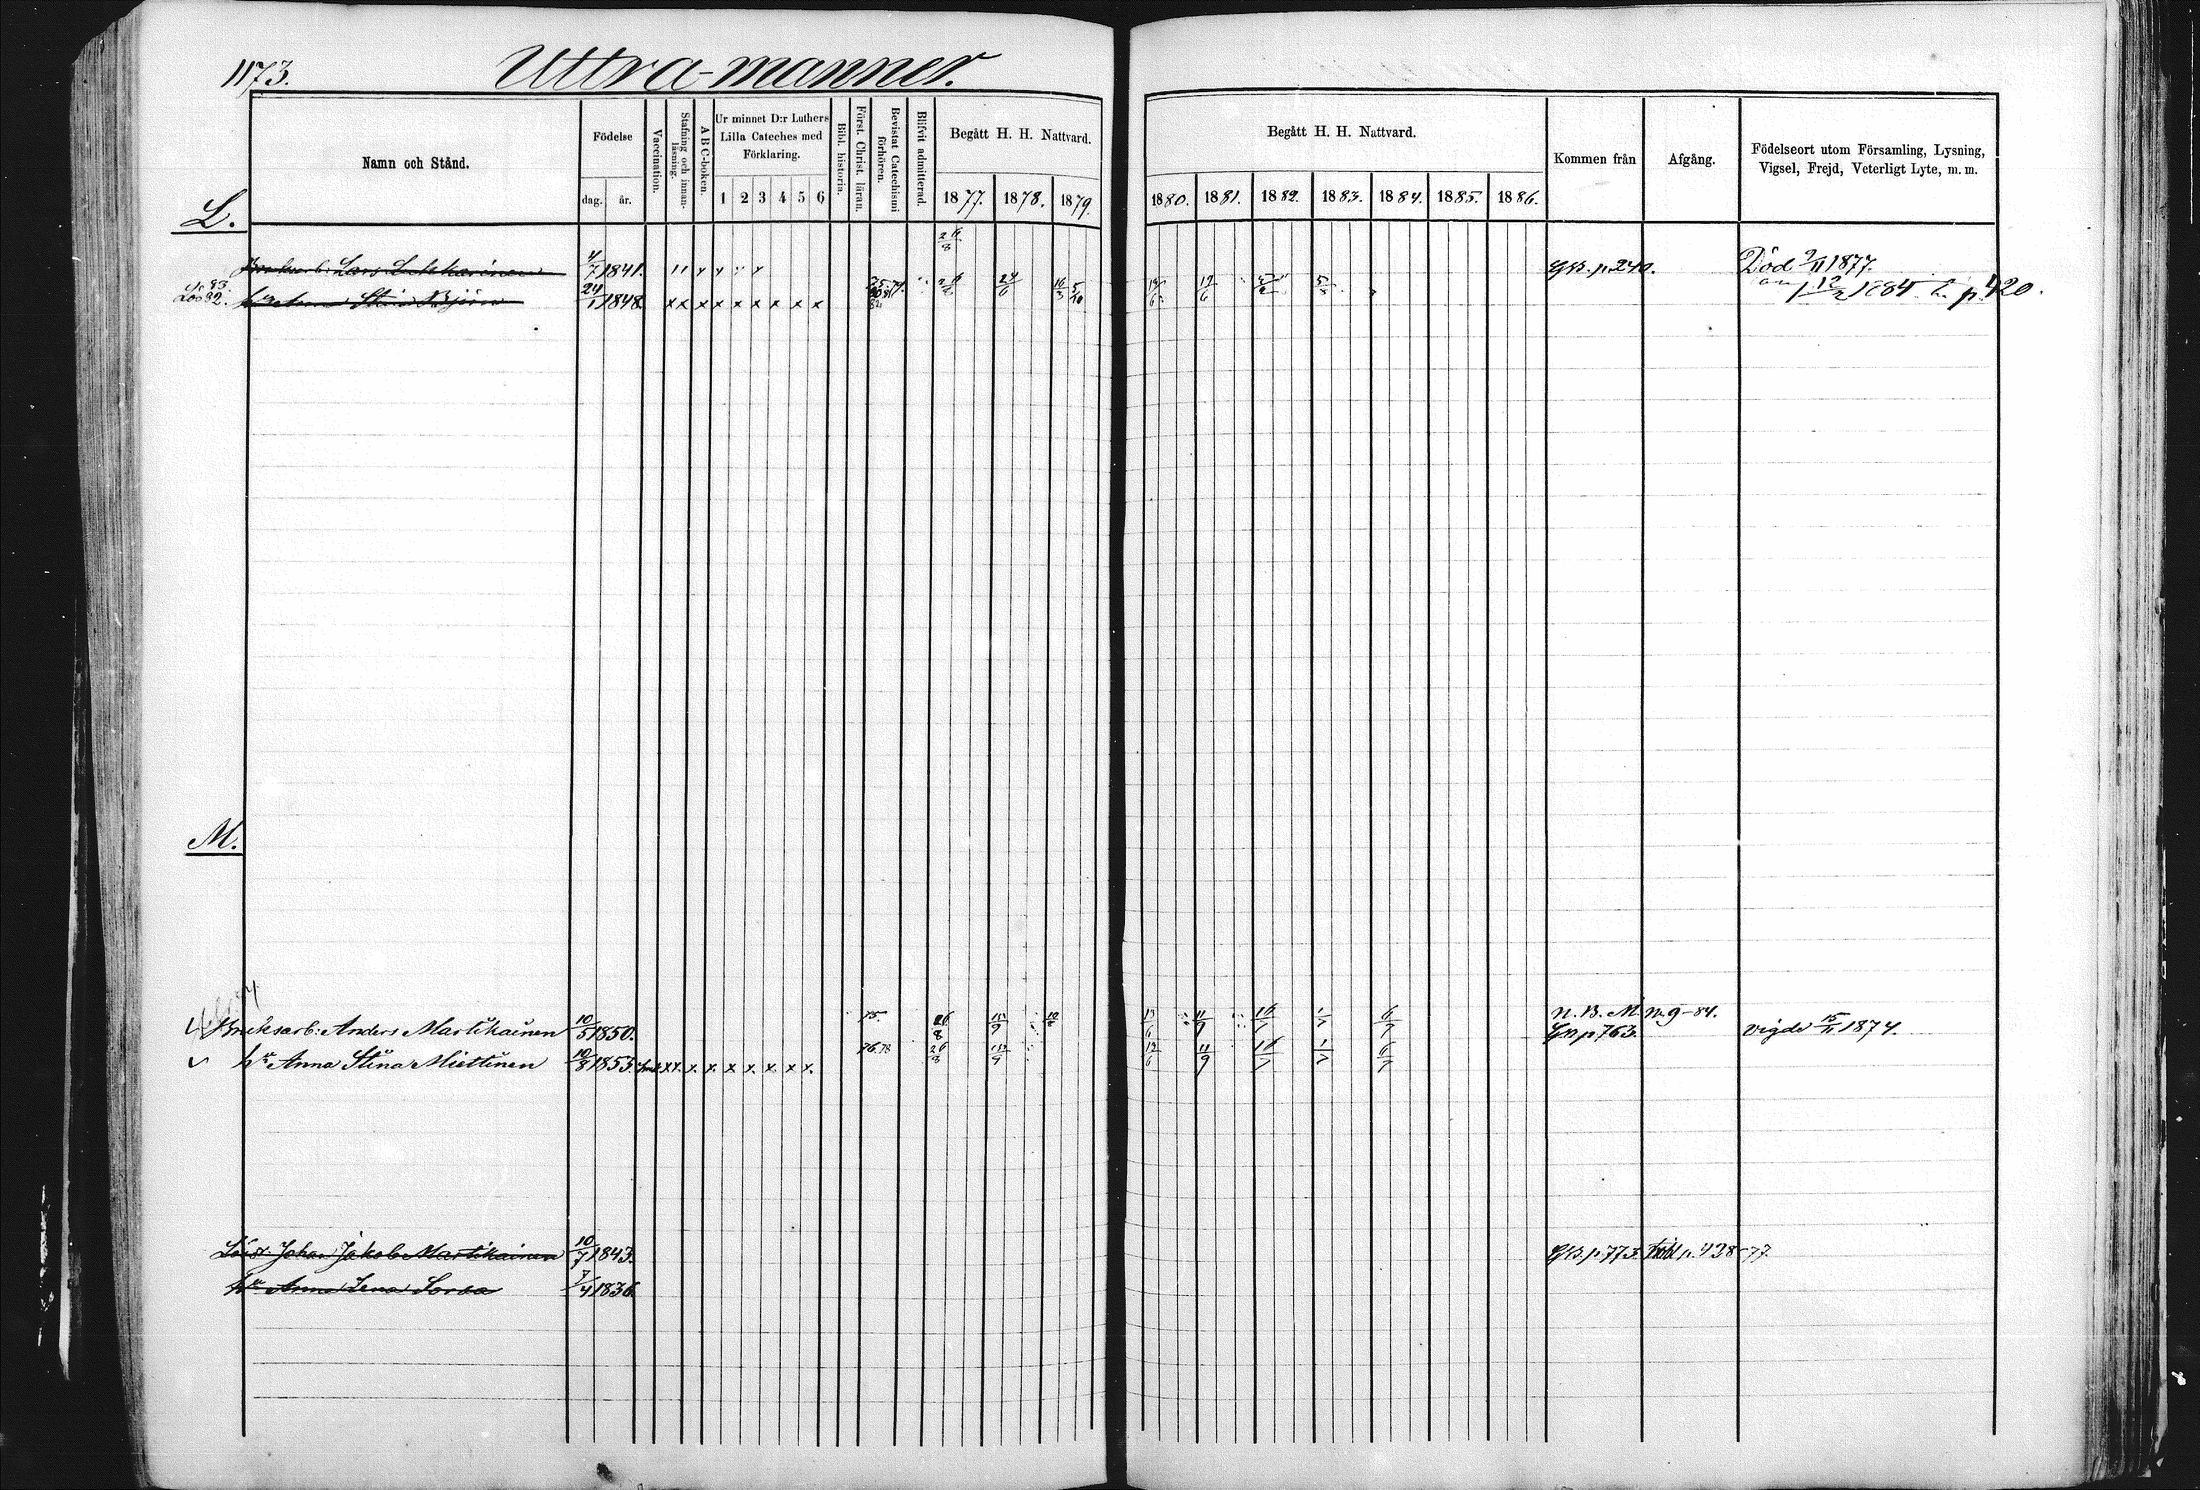 1173. Uttra-manner.
Namn och Stånd. Födelse dag. år. Vaccination. Stafning och innanläsning. A B C-boken. Ur minnet D:r Luthers Lilla Cateches med Förklaring. 1 2 3 4 5 6 Bibl. historia. Först. Christ. läran. Bevistat Catechismi förhören. Blifvit admitterad. Begått H. H. Nattvard. 1877. 1878. 1879.
Begått H. H. Nattvard. 1880. 1881. 1882. 1883. 1884. 1885. 1886. Kommen från Afgång. Födelseort utom Församling, Lysning, Vigsel, Frejd, Veterligt Lyte, m. m.
L.
26/8
Bruksarb: Lars 4/7 1841. GB. p. 240. Död 2/11 1877.
Stina Björn 24/1 1848. x x x x x x x x x 24/6 16/3 5/10 19/6 p. 420.
M.
Bruksarb: Anders Martikainen 10/5 1850. 75. 26/8 15/9 11/9 16/7 1/7 6/7 N. B. M. n. 9-84.
GB. p 763. Vigde 15/11 1874.
hu Anna Stina Miettinen 10/8 1853. x x x x x x x x x 76.78 26/8 11/9 16/7 1/7 6/7
Löst. Johan Jakob Martikainen 10/7 1843. GB. p. 773. p. 438-77.
hu Anna Lena Sorsa 7/4 1836.